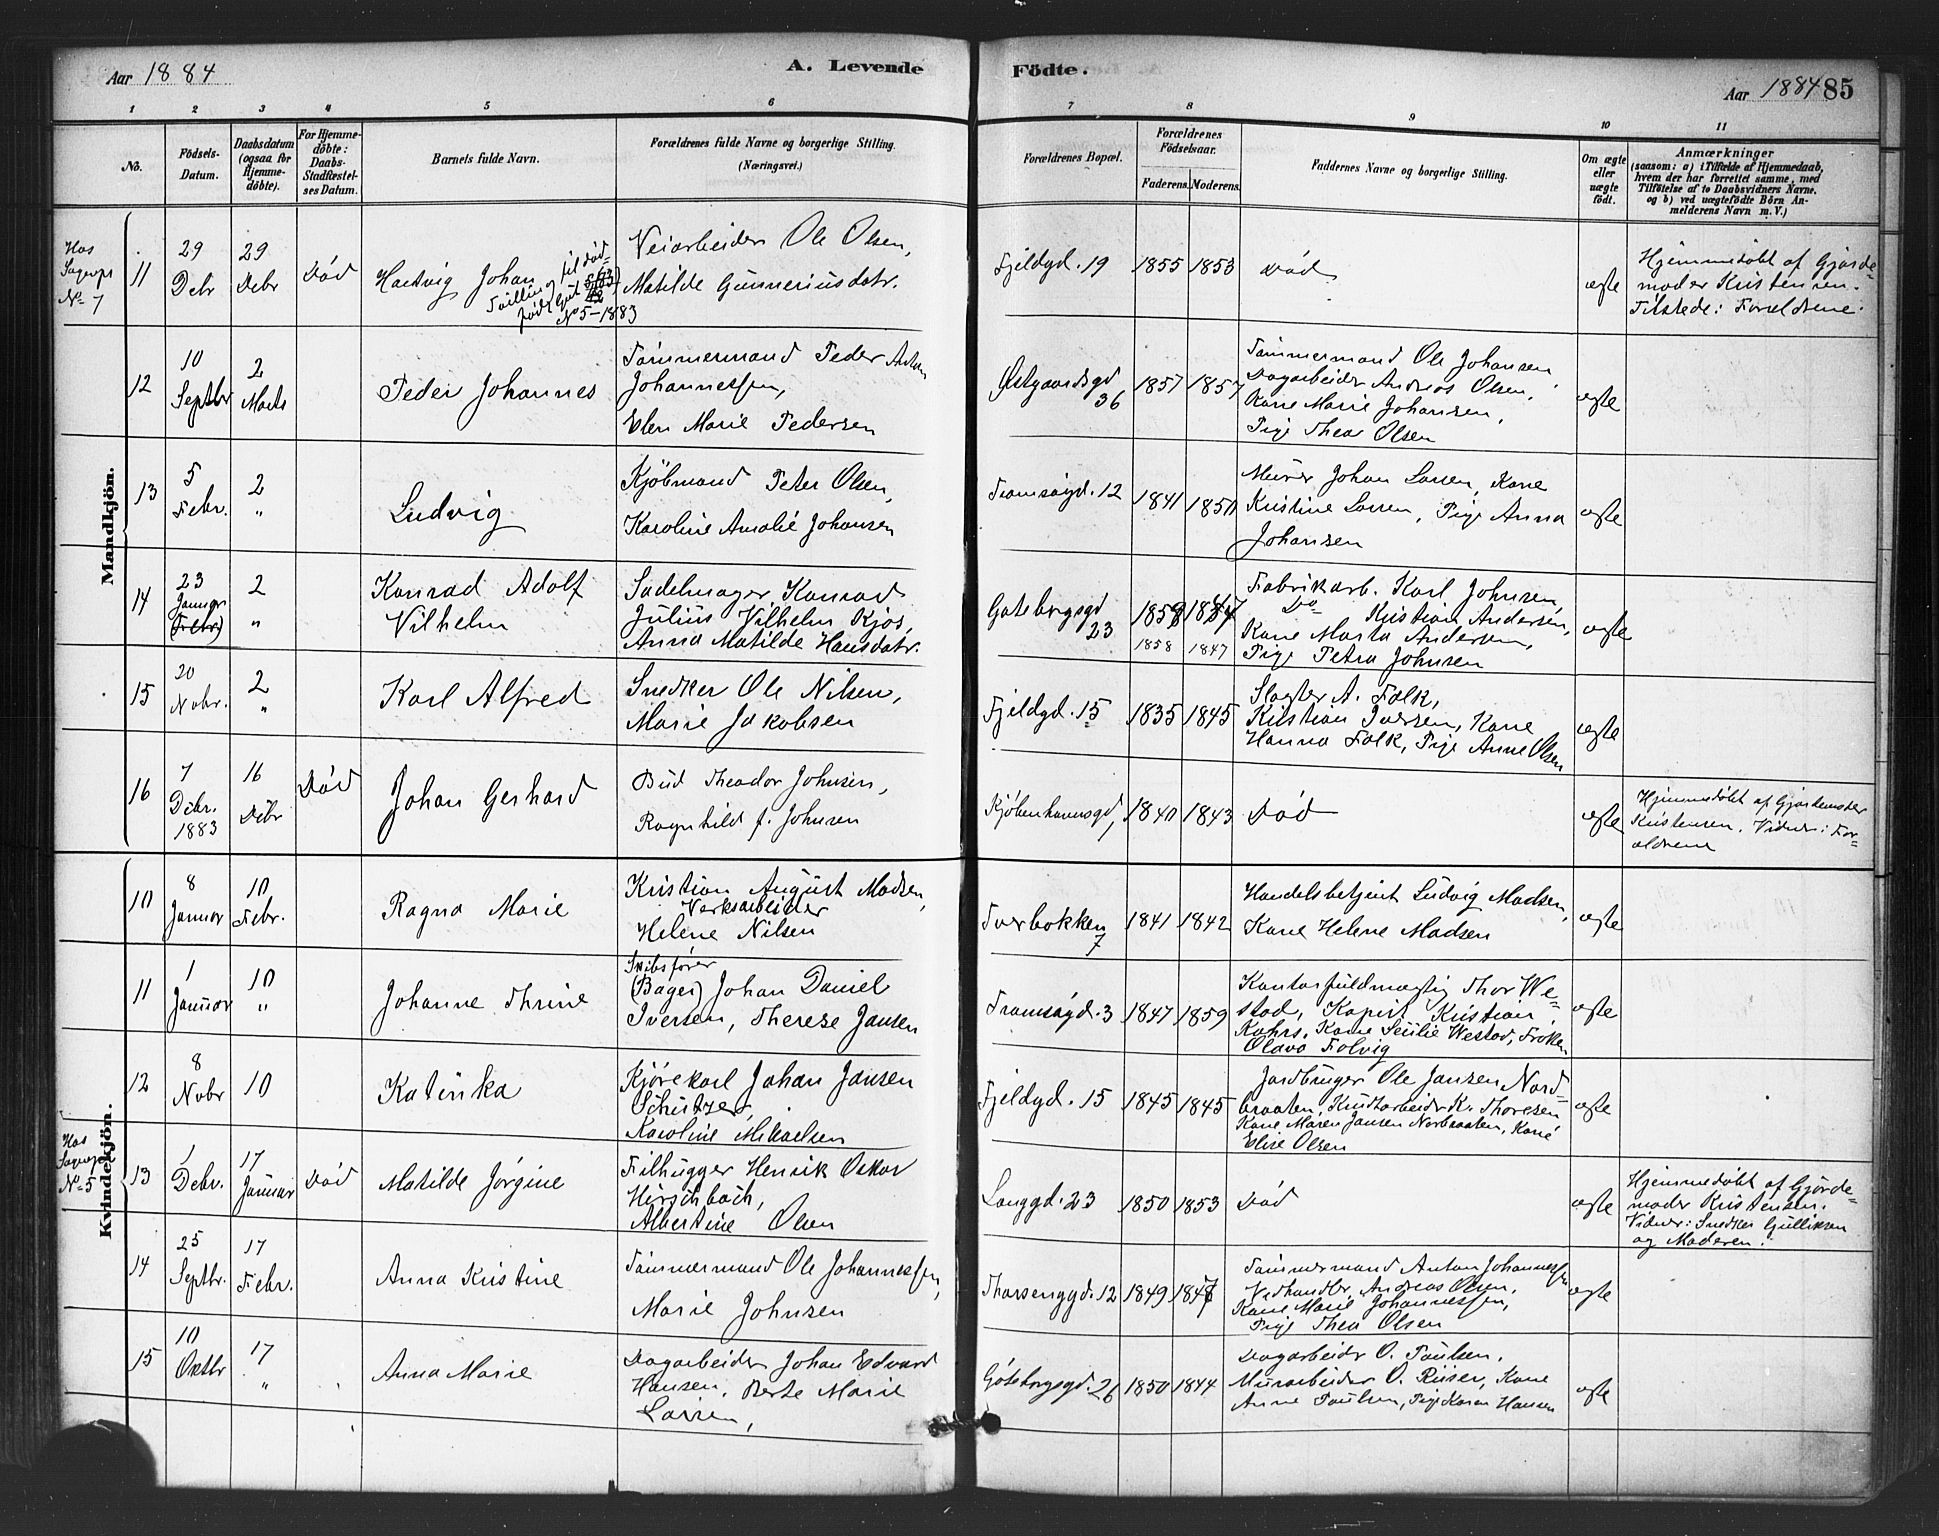 Aar 1884
A. Levende
Födte.
Aar 1884 85
1 2 3 4 5 6 7 8 9 10 11
No.
Födsels-
Datum.
Daabsdatum
(ogsaa for
Hjemme-
döbte).
For Hjemme-
döbte:
Daabs-
Stadfæstel-
ses Datum.
Barnets fulde Navn.
Forældrenes fulde Navne og borgerlige Stilling.
(Næringsvei.)
Forældrenes Bopæl.
Forældrenes
Födselsaar.
Faderens. Moderens.
Faddernes Navne og borgerlige Stilling.
Om ægte
eller
uægte
födt.
Anmærkninger
(saasom: a) i Tilfælde af Hjemmedaab,
hvem der har forrettet samme, med
Tilföielse af to Daabsvidners Navne.
og b) ved uægtefödte Börn An-
melderens Navn m. V.)
Mandkjön.
Hos
Sogepr
No 7
11
29
Debr
29
Debr
Död
Hartvig Johan
Tvilling til død-
født Gut
No 5-1883
Veiarbeider Ole Olsen,
Matilde Gunneriusdatr.
Fjeldgd. 19
1855
1853
Död
ægte
Hjemmedøbt af Gjorde-
moder Kristensen.
Tilstede: Forældrene.
12
10
Septbr
2
Marts
Peder Johannes
Tømmermand Peder Anton
Johannessen,
Elen Marie Pedersen
Østgaardsgd
36
1857
1857
Tømmermand Ole Johansen,
Dagarbeider Andreas Olsen,
Kone Marie Johansen,
Pige Thea Olsen
ægte
13
5
Febr.
2
"
Ludvig
Kjøbmand Peter Olsen,
Karoline Amalie Johansen
Tromsøgd. 12
1841
1850
Murer Johan Larsen, Kone
Kristine Larsen, Pige Anna
Johansen
ægte
14
23
Januar
(Febr.)
2
"
Konrad Adolf
Vilhelm
Sadelmager Konrad
Julius Vilhelm Kjos,
Anna Matilde Hansdatr.
Gøteborgsgd
23
1858
1847
1858
1847
Fabrikarb. Karl Johnsen,
Do Kristian Andersen,
Kone Marta Andersen,
Pige Petra Johnsen
ægte
15
20
Novbr.
2
"
Karl Alfred
Snedker Ole Nilsen,
Marie Jakobsen
Fjeldgd. 15
1835
1845
Slagter A. Falk,
Kristian Iversen, Kone
Hanna Falk, Pige Anne Olsen
ægte
16
7
Debr.
1883
16
Debr
Död
Johan Gerhard
Bud Theodor Johnsen,
Ragnhild f. Johnsen
Kjøbenhavnsgd
1840
1843
Död
ægte
Hjemmedøbt af Gjordemoder
Kristensen. Vidner: For-
ældrene
Kvindekjön.
10
8
Januar
10
Febr.
Ragna Marie
Kristian August Madsen,
Verksarbeider
Helene Nilsen
Torbakken
7
1841
1842
Handelsbetjent Ludvig Madsen,
Kone Helene Madsen
ægte
11
1
Januar
10
"
Johanne Thrine
Skibsfører
(Bager) Johan Daniel
Iversen, Therese Jansen
Tromsøgd. 3
1847
1859
Kontorfuldmægtig Thor We-
stad, Kapit. Kristian
Rohrs, Kone Secilie Westad, Frøken
Olava Folvig
ægte
12
8
Novbr
10
Katinka
Kjørekarl Johan Jansen
Schutzer,
Karoline Mikaelsen
Fjeldgd. 15
1845
1845
Jordbruger Ole Jansen Nord-
braaten, K. Thoresen
Kone Maren Jansen Norbraaten, Kone
Elise Olsen
ægte
Hos
Sogepr
No 5
13
1
Debr.
17
Januar
Död
Matilde Jørgine
Filhugger Henrik Oskar
Hirschbach,
Albertine Olsen
Langgd. 23
1850
1853
Död
ægte
Hjemmedøbt af Gjorde-
moder Kristensen.
Vidner: Snedker Gulliksen
og Moderen.
14
25
Septbr.
17
Febr.
Anna Kristine
Tømmermand Ole Johannessen,
Marie Johnsen
Thorsenggd. 12
1849
1847
Tømmermand Anton Johannessen
Vedhandler Andreas Olsen,
Kone Marie Johannessen,
Pige Thea Olsen
ægte
15
10
Oktbr
17
"
Anna Marie
Dagarbeider Johan Edvard
Hansen, Berte Marie
Larsen,
Gøteborgsgd. 26
1850
1844
Dagarbeider O. Paulsen,
Murarbeider O. Riiser, Kone
Anne Paulsen, Pige Karen Hansen
ægte